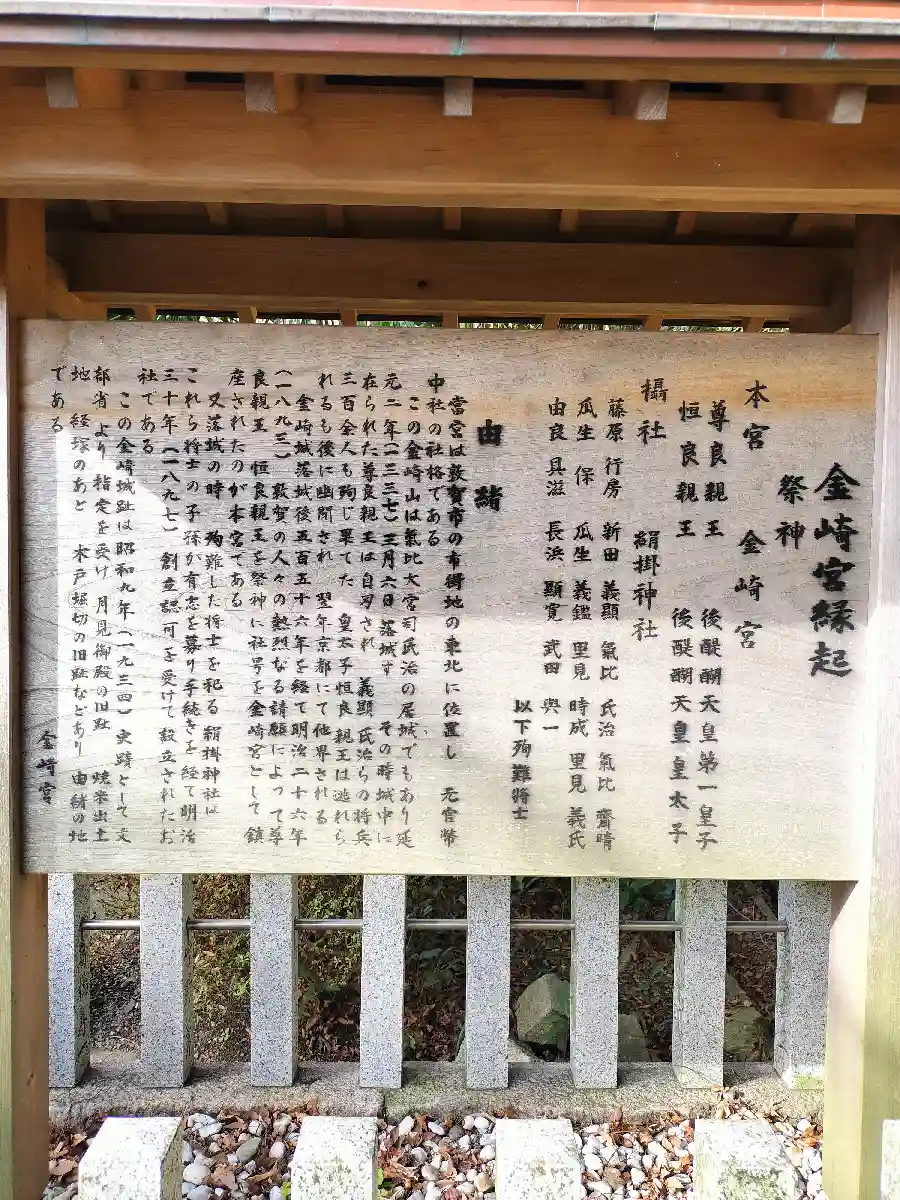 金崎宮縁起
祭神
本宮　金崎宮
尊良親王　後醍醐天皇第一皇子
恒良親王　後醍醐天皇皇太子
摂社　絹掛神社
藤原行房　新田義顕　氣比氏治　氣比齊晴
瓜生保　瓜生義鑑　里見時成　里見義氏
由良具滋　長浜顕寛　武田與一
以下殉難将士
由緒
當宮は敦賀市の市街地の東北に位置し　元官幣
中社の社格である
この金崎山は氣比大宮司氏治の居城でもあり延
元二年（一三三七）三月六日落城す　その時城中に
在られた尊良親王は自刃され　義顕氏治らの将兵
三百余人も殉じ果てた　皇太子恒良親王は逃れら
れるも後に幽閉され　翌年京都にて他界される
金崎城落城後五百五十六年を経て明治二十六年
（一八九三）敦賀の人々の熱烈なる請願によって尊
良親王　恒良親王を祭神に社号を金崎宮として鎮
座されたのが本宮である
又落城の時　殉難した将士を祀る絹掛神社は
これら将士の子孫が有志を募り手続きを経て明治
三十年（一八九七）創立認可を受けて設立されたお
社である
この金崎城趾は昭和九年（一九三四）史蹟として文
部省より指定を受け　月見御殿の旧趾　焼米出土
地　経塚のあと　木戸（堀切）の旧趾などあり　由緒の地
である
金崎宮